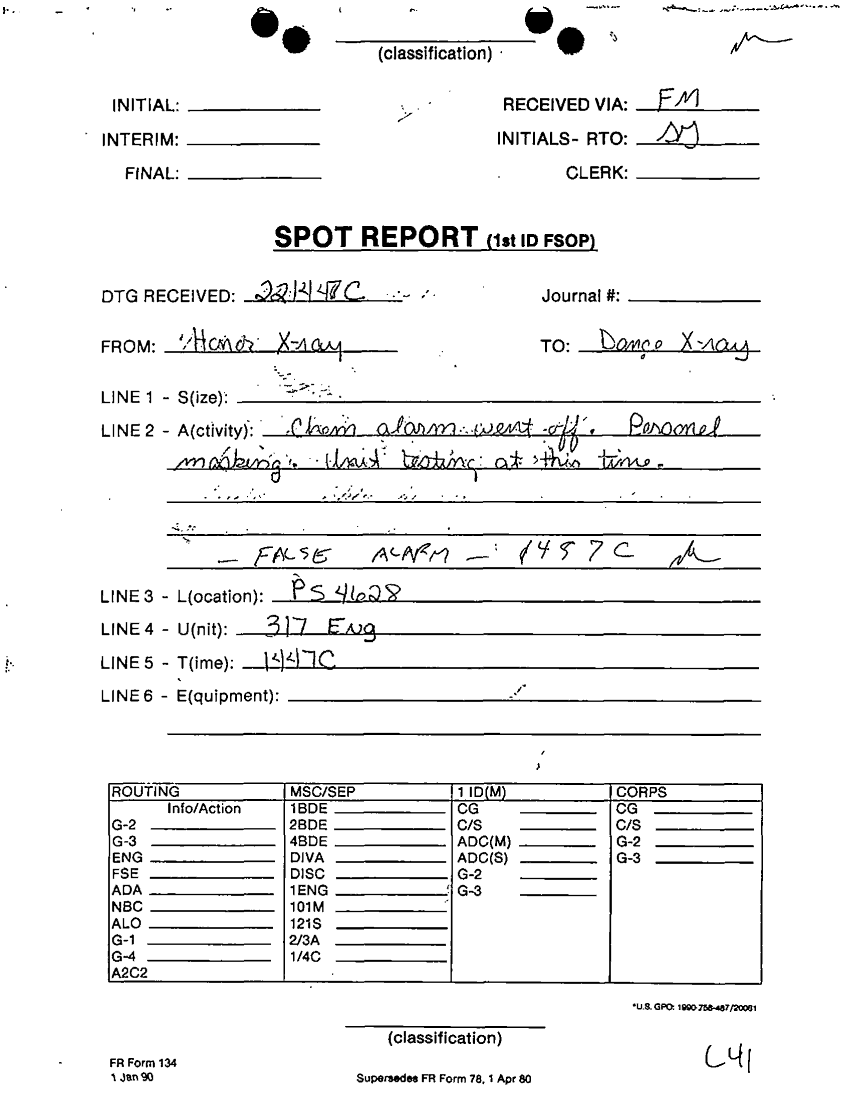 (classification)
INITIAL: RECEIVED VIA: FM
INTERIM: INITIALS- RTO:
FINAL: CLERK:
SPOT REPORT (1st ID FSOP)
DTG RECEIVED: 221447C Journal #:
FROM: Honor X-ray TO: Dance X-ray
LINE 1 - S(ize):
LINE 2 - A(ctivity): Chem alarm went off. Personel
masking. Unit testing at this time.
— FALSE ALARM — 1457C
LINE 3 - L(ocation): PS 4628
LINE 4 - U(nit): 317 Eng
LINE 5 - T(ime): 1447C
LINE 6 - E(quipment):
ROUTING MSC/SEP 1 ID(M) CORPS
Info/Action 1BDE CG CG
G-2 2BDE C/S C/S
G-3 4BDE ADC(M) G-2
ENG DIVA ADC(S) G-3
FSE DISC G-2
ADA 1ENG G-3
NBC 101M
ALO 121S
G-1 2/3A
G-4 1/4C
A2C2
*U.S. GPO: 1990-758-487/20061
(classification)
C41
FR Form 134
1 Jan 90 Supersedes FR Form 78, 1 Apr 80